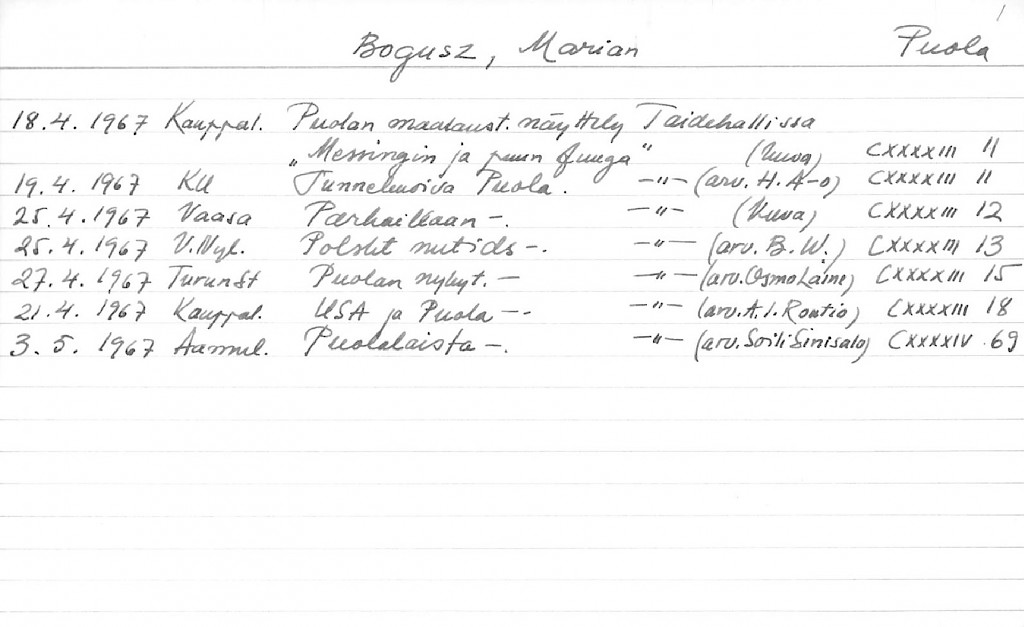 1
Bogusz, Marian Puola
18.4. 1967 Kauppal. Puolan maataust. näyttely Taidehallissa
„Messingin ja puun fuuga" (kuva) CXXXXIII 11
19.4. 1967 KU Tunnelmoiva Puola. —"— (arv. H. A-o) CXXXXIII 11
25.4. 1967 Vaasa Parhaillaan —. —"— (kuva) CXXXXIII 12
25.4. 1967 V.Nyl. Polskt nutids —. —"— (arv. B. W.) CXXXXIII 13
27.4. 1967 TurunSt Puolan nykyt. — —"— (arv. Osmo Laine) CXXXXIII 15
21.4. 1967 Kauppal. USA ja Puola —. —"— (arv. A.I. Routio) CXXXXIII 18
3. 5. 1967 Aamul. Puolalaista —. —"— (arv. Soili Sinisalo) CXXXXIV 69